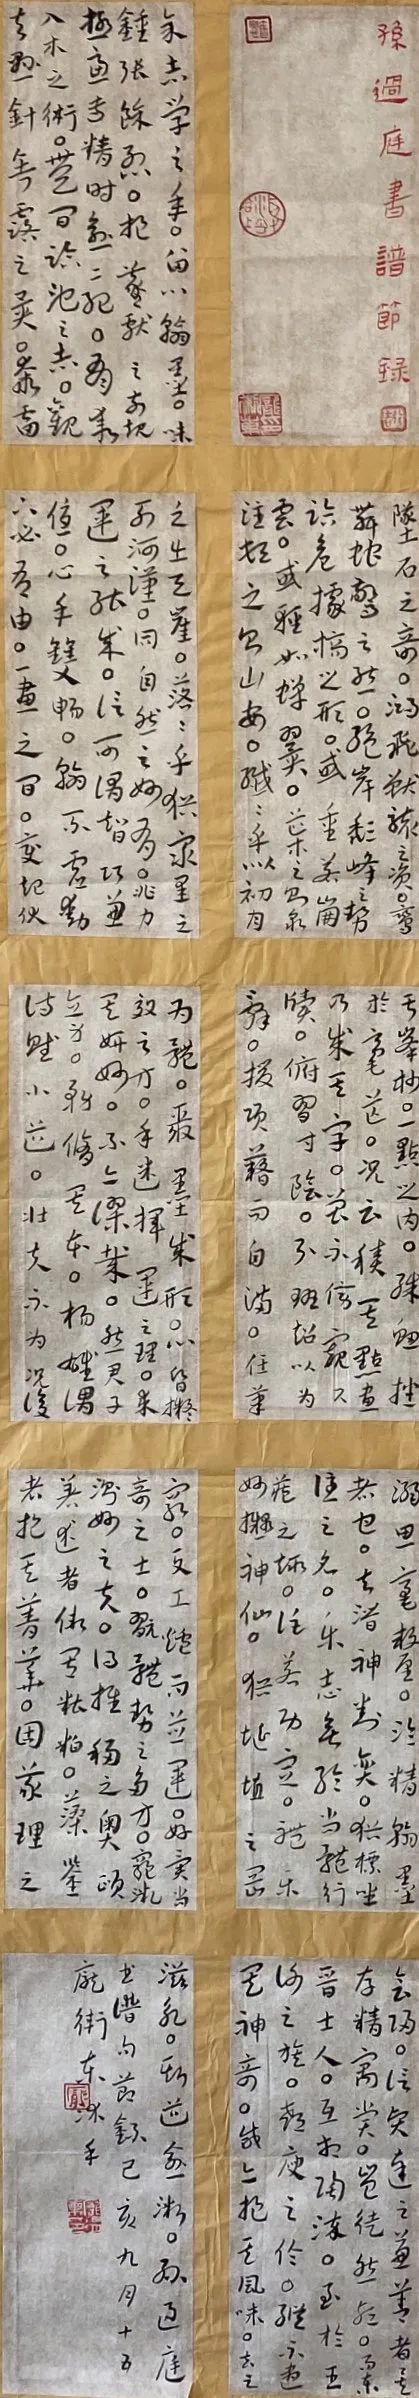 孫過庭書譜節録
余志学之年。留心翰墨。味
鍾張餘烈。挹羲獻之前規
極慮專精。時逾二紀。有乖
入木之術。無間臨池之志。觀
夫懸針垂露之異。奔雷
墜石之奇。鴻飛獸駭之資。鸞
舞蛇驚之態。絕岸頹峰之勢
臨危據槁之形。或重若崩
雲。或輕如蟬翼。導之則泉
注。頓之則山安。纖々乎似初月
之出天崖。落々乎猶眾星之
列河漢。同自然之妙有。非力
運之能成。信可謂智巧兼
優。心手雙暢。翰不虛動
下必有由。一畫之間。變起伏
於峯杪。一點之内。殊衄挫
於毫芒。況云積其點畫
乃成其字。曾不傍窺尺
牘。俯習寸陰。引班超以為
辭。援項籍而自滿。任筆
为體。聚墨成形。心昏擬
效之方。手迷揮運之理。求
其妍妙。不亦謬哉。然君子
立身。務脩其本。楊雄謂
詩賦小道。壯夫不为。況復
溺思毫釐。淪精翰墨
者也。夫潜神對奕。猶標坐
隱之名。樂志垂綸。尚體行
藏之趣。詎若功宣。禮樂
妙擬神仙。猶埏埴之罔
窮。与工鑪而並運。好異尚
奇之士。翫體勢之多方。窮微
測妙之夫。得推移之奥賾
著述者假其糟粕。藻鑒
者挹其菁華。固義理之
會歸。信賢達之兼善者矣
存精寓賞。豈徒然與。而東
晋士人。互相陶淬。至於王
謝之族。郗庾之倫。縱不盡
其神奇。咸亦挹其風味。去之
滋永。斯道愈微。孫過庭
书譜句節録己亥九月十五